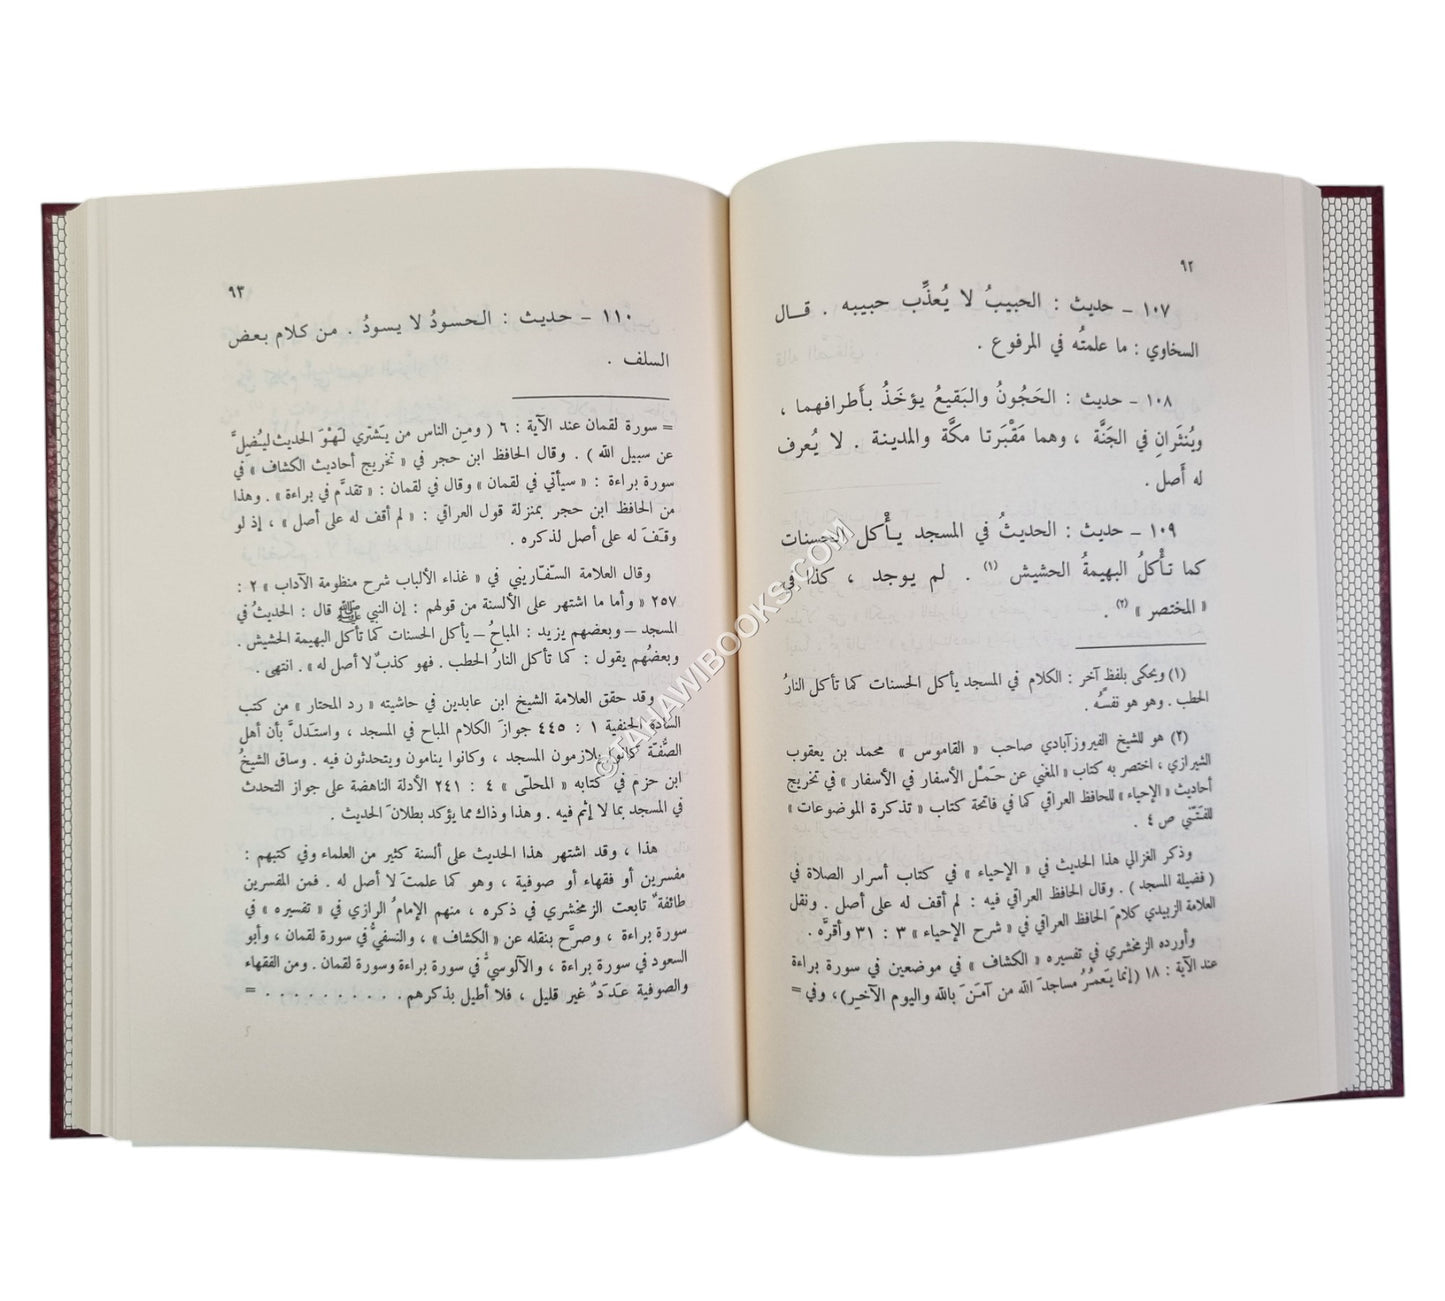 ٩٢
١٠٧ – حديث : الحبيبُ لا يُعذِّب حبيبه . قال
السخاوي : ما علمتُه في المرفوع .
١٠٨ – حديث : الحَجُونُ والبَقيعُ يؤخَذُ بأَطرافهما ،
ويُنثَرانِ في الجَنَّة ، وهما مَقْبَرتا مكَّة والمدينة . لا يُعرف
له أَصل .
١٠٩ – حديث : الحديثُ في المسجد يأْكل الحسنات
كما تأْكلُ البهيمةُ الحشيش (١) . لم يوجد ، كذا في
« المختصر » (٢) .
(١) ويحكى بلفظ آخر : الكلام في المسجد يأكل الحسنات كما تأكل النارُ
الحطب . وهو هو نفسُه .
(٢) هو للشيخ الفيروزآبادي صاحب « القاموس » محمد بن يعقوب
الشيرازي ، اختصر به كتاب « المغني عن حَمْل الأسفار في الأسفار » في تخريج
أحاديث « الإحياء » للحافظ العراقي كما في فاتحة كتاب « تذكرة الموضوعات »
للفَتَّني ص ٤ .
وذكر الغزالي هذا الحديث في « الإحياء » في كتاب أسرار الصلاة في
( فضيلة المسجد ) . وقال الحافظ العراقي فيه : لم أقف له على أصل . ونقل
العلامة الزبيدي كلامَ الحافظ العراقي في « شرح الإحياء » ٣ : ٣١ وأقرَّه .
وأورده الزمخشري في تفسيره « الكشاف » في موضعين في سورة براءة
عند الآية : ١٨ (إنما يَعمُرُ مساجدَ الله من آمَنَ بالله واليوم الآخر)، وفي =
٩٣
١١٠ – حديث : الحسودُ لا يسودُ . من كلام بعض
السلف .
= سورة لقمان عند الآية : ٦ ( ومِن الناس من يَشتري لَهْوَ الحديث ليُضِلَّ
عن سبيل الله ) . وقال الحافظ ابن حجر في « تخريج أحاديث الكشاف » في
سورة براءة : « سيأتي في لقمان » وقال في لقمان : « تقدَّم في براءة » . وهذا
من الحافظ ابن حجر بمنزلة قول العراقي : « لم أقف له على أصل » ، إذ لو
وقَفَ له على أصل لذكره .
وقال العلامة السفّاريني في « غذاء الألباب شرح منظومة الآداب » ٢ :
٢٥٧ « وأما ما اشتهر على الألسنة من قولهم : إن النبي ﷺ قال : الحديثُ في
المسجد – وبعضهم يزيد : المباحُ – يأكل الحسنات كما تأكل البهيمة الحشيش .
وبعضُهم يقول : كما تأكل النارُ الحطب . فهو كذبٌ لا أصل له » . انتهى .
وقد حقق العلامة الشيخ ابن عابدين في حاشيته « رد المحتار » من كتب
السادة الحنفية ١ : ٤٤٥ جوازَ الكلام المباح في المسجد ، واستدلَّ بأن أهل
الصُّفَّة كانوا يلازمون المسجد ، وكانوا ينامون ويتحدثون فيه . وساق الشيخُ
ابن حزم في كتابه « المحلّى » ٤ : ٢٤١ الأدلة الناهضة على جواز التحدث
في المسجد بما لا إثم فيه . وهذا وذاك مما يؤكد بطلانَ الحديث .
هذا ، وقد اشتهر هذا الحديث على ألسنة كثير من العلماء وفي كتبهم :
مفسرين أو فقهاء أو صوفية ، وهو كما علمتَ لا أصل له . فمن المفسرين
طائفةٌ تابعت الزمخشري في ذكره ، منهم الإمامُ الرازي في « تفسيره » في
سورة براءة ، وصرَّح بنقله عن « الكشاف » ، والنسفيُّ في سورة لقمان ، وأبو
السعود في سورة براءة ، والآلوسيُّ في سورة براءة وسورة لقمان . ومن الفقهاء
والصوفية عَدَدٌ غير قليل ، فلا أطيل بذكرهم . . . . . . . . . . . =
©TAHAWIBOOKS.COM